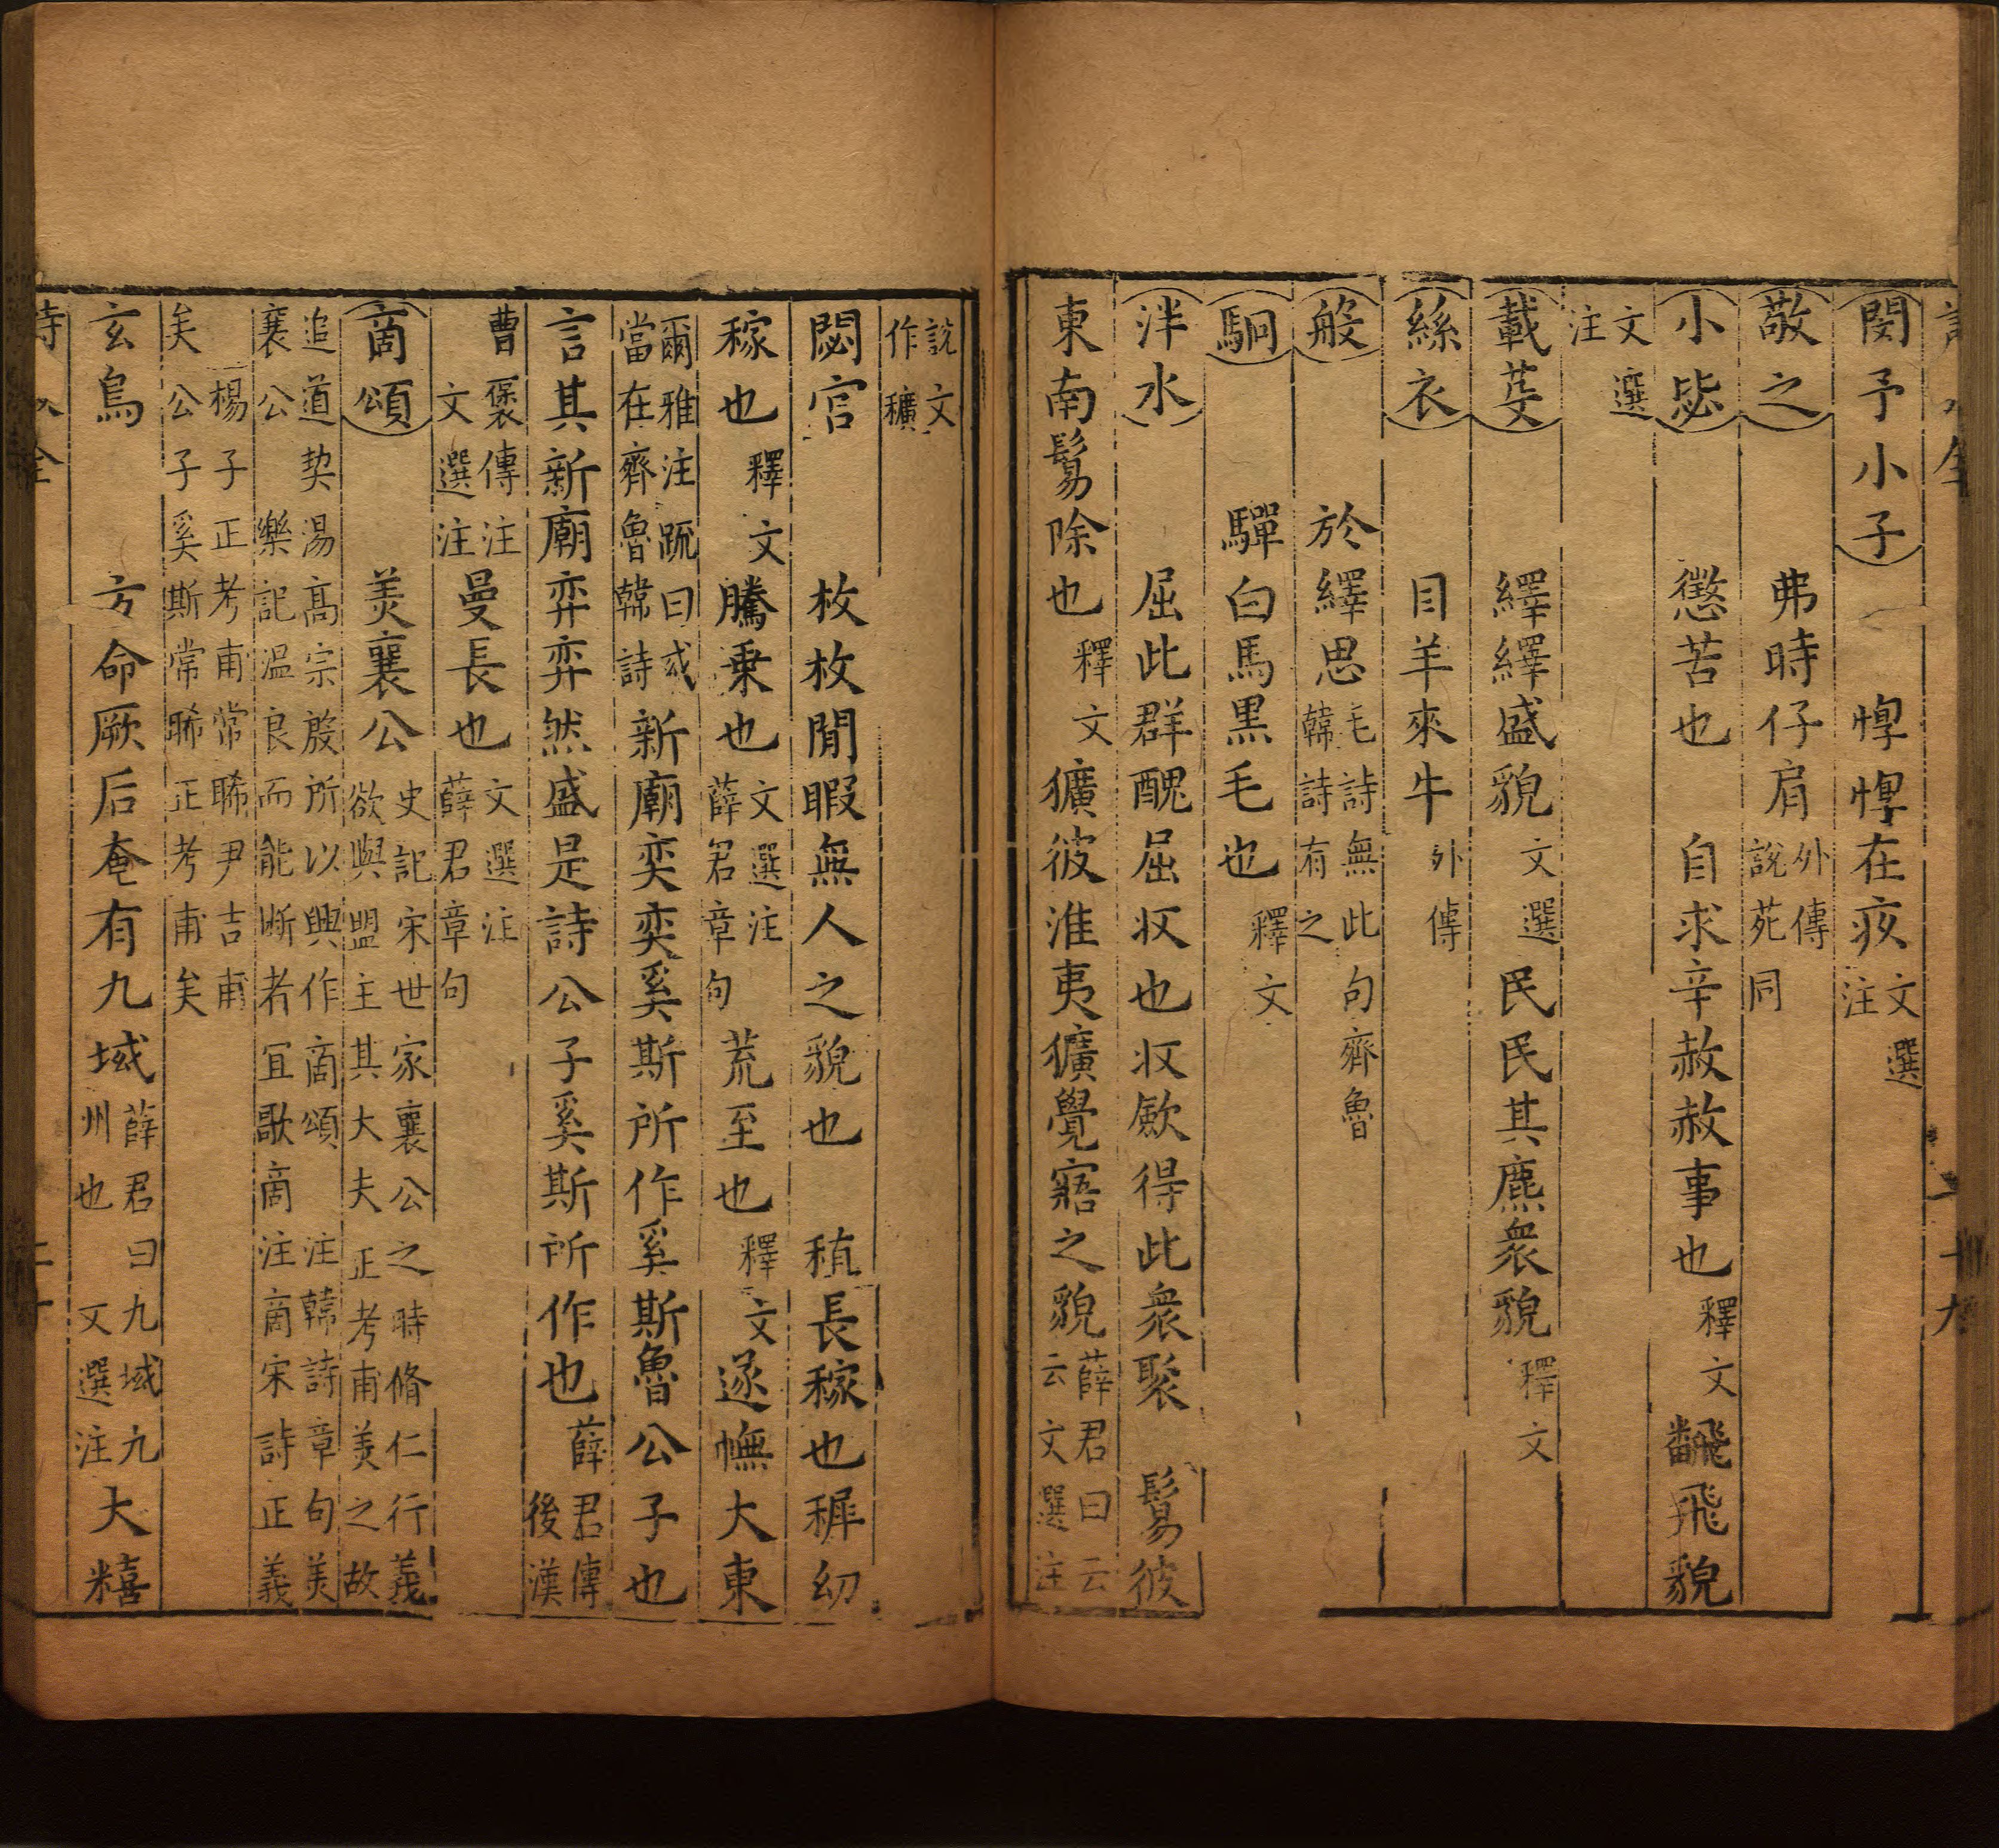 閔予小子　惸惸在疚文選注
敬之　弗時仔肩外傳說苑同
小毖　懲苦也　自求辛赦赦事也釋文飜飛貌
文選注
載芟　繹繹盛貌文選民民其麃衆貌釋文
絲衣　自羊來牛外傳
般　於繹思毛詩無此句齊魯韓詩有之
駉　驒白馬黑毛也釋文
泮水　屈此群醜屈收也收斂得此衆聚　鬄彼
東南鬄除也釋文獷彼淮夷獷覺寤之貌薛君曰云云文選注
說文作穬
閟宮　枚枚閒暇無人之貌也　稙長稼也稺幼
稼也釋文騰乗也文選注薛君章句荒至也釋文遂幠大東
爾雅注疏曰或當在齊魯韓詩新廟奕奕奚斯所作奚斯魯公子也
言其新廟弈弈然盛是詩公子奚斯所作也薛君傳後漢
曹褒傳注文選注曼長也文選注薛君章句
商頌　美襄公史記宋世家襄公之時脩仁行義欲與盟主其大夫正考甫美之故
追道契湯高宗殷所以興作商頌　注韓詩章句美襄公　樂記溫良而能斷者宜歌商注商宋詩正義
楊子正考甫常睎尹吉甫矣公子奚斯常睎正考甫矣
玄鳥　方命厥后奄有九域薛君曰九域九州也　文選注大糦